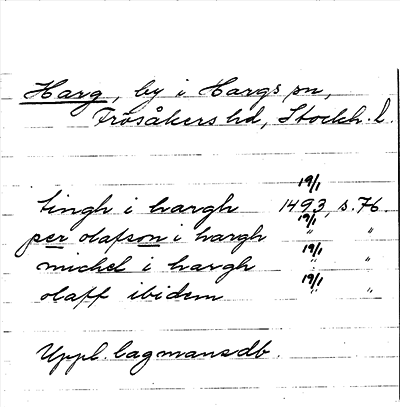 Harg, by i Hargs sn,
Frösåkers hd, Stockh. l.
tingh i hargh 19/1 1493, s. 76.
per olafson i hargh 19/1 " "
michel i hargh 19/1 " "
olaff ibidem 19/1 " "
Uppl. lagmansdb.